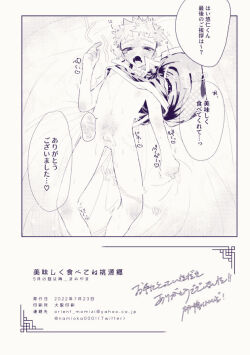 はい悠仁くん
最後のご挨拶は〜？
美味しく
食べてくれて…っ
ありがとう
ございました…♡
美味しく食べてね桃源郷
発行日
2022年7月23日
印刷所
大陽印刷
連絡先
orient_momiai@yahoo.co.jp
@namioka0001(Twitter)
お手にとっていただき
ありがとうございます！